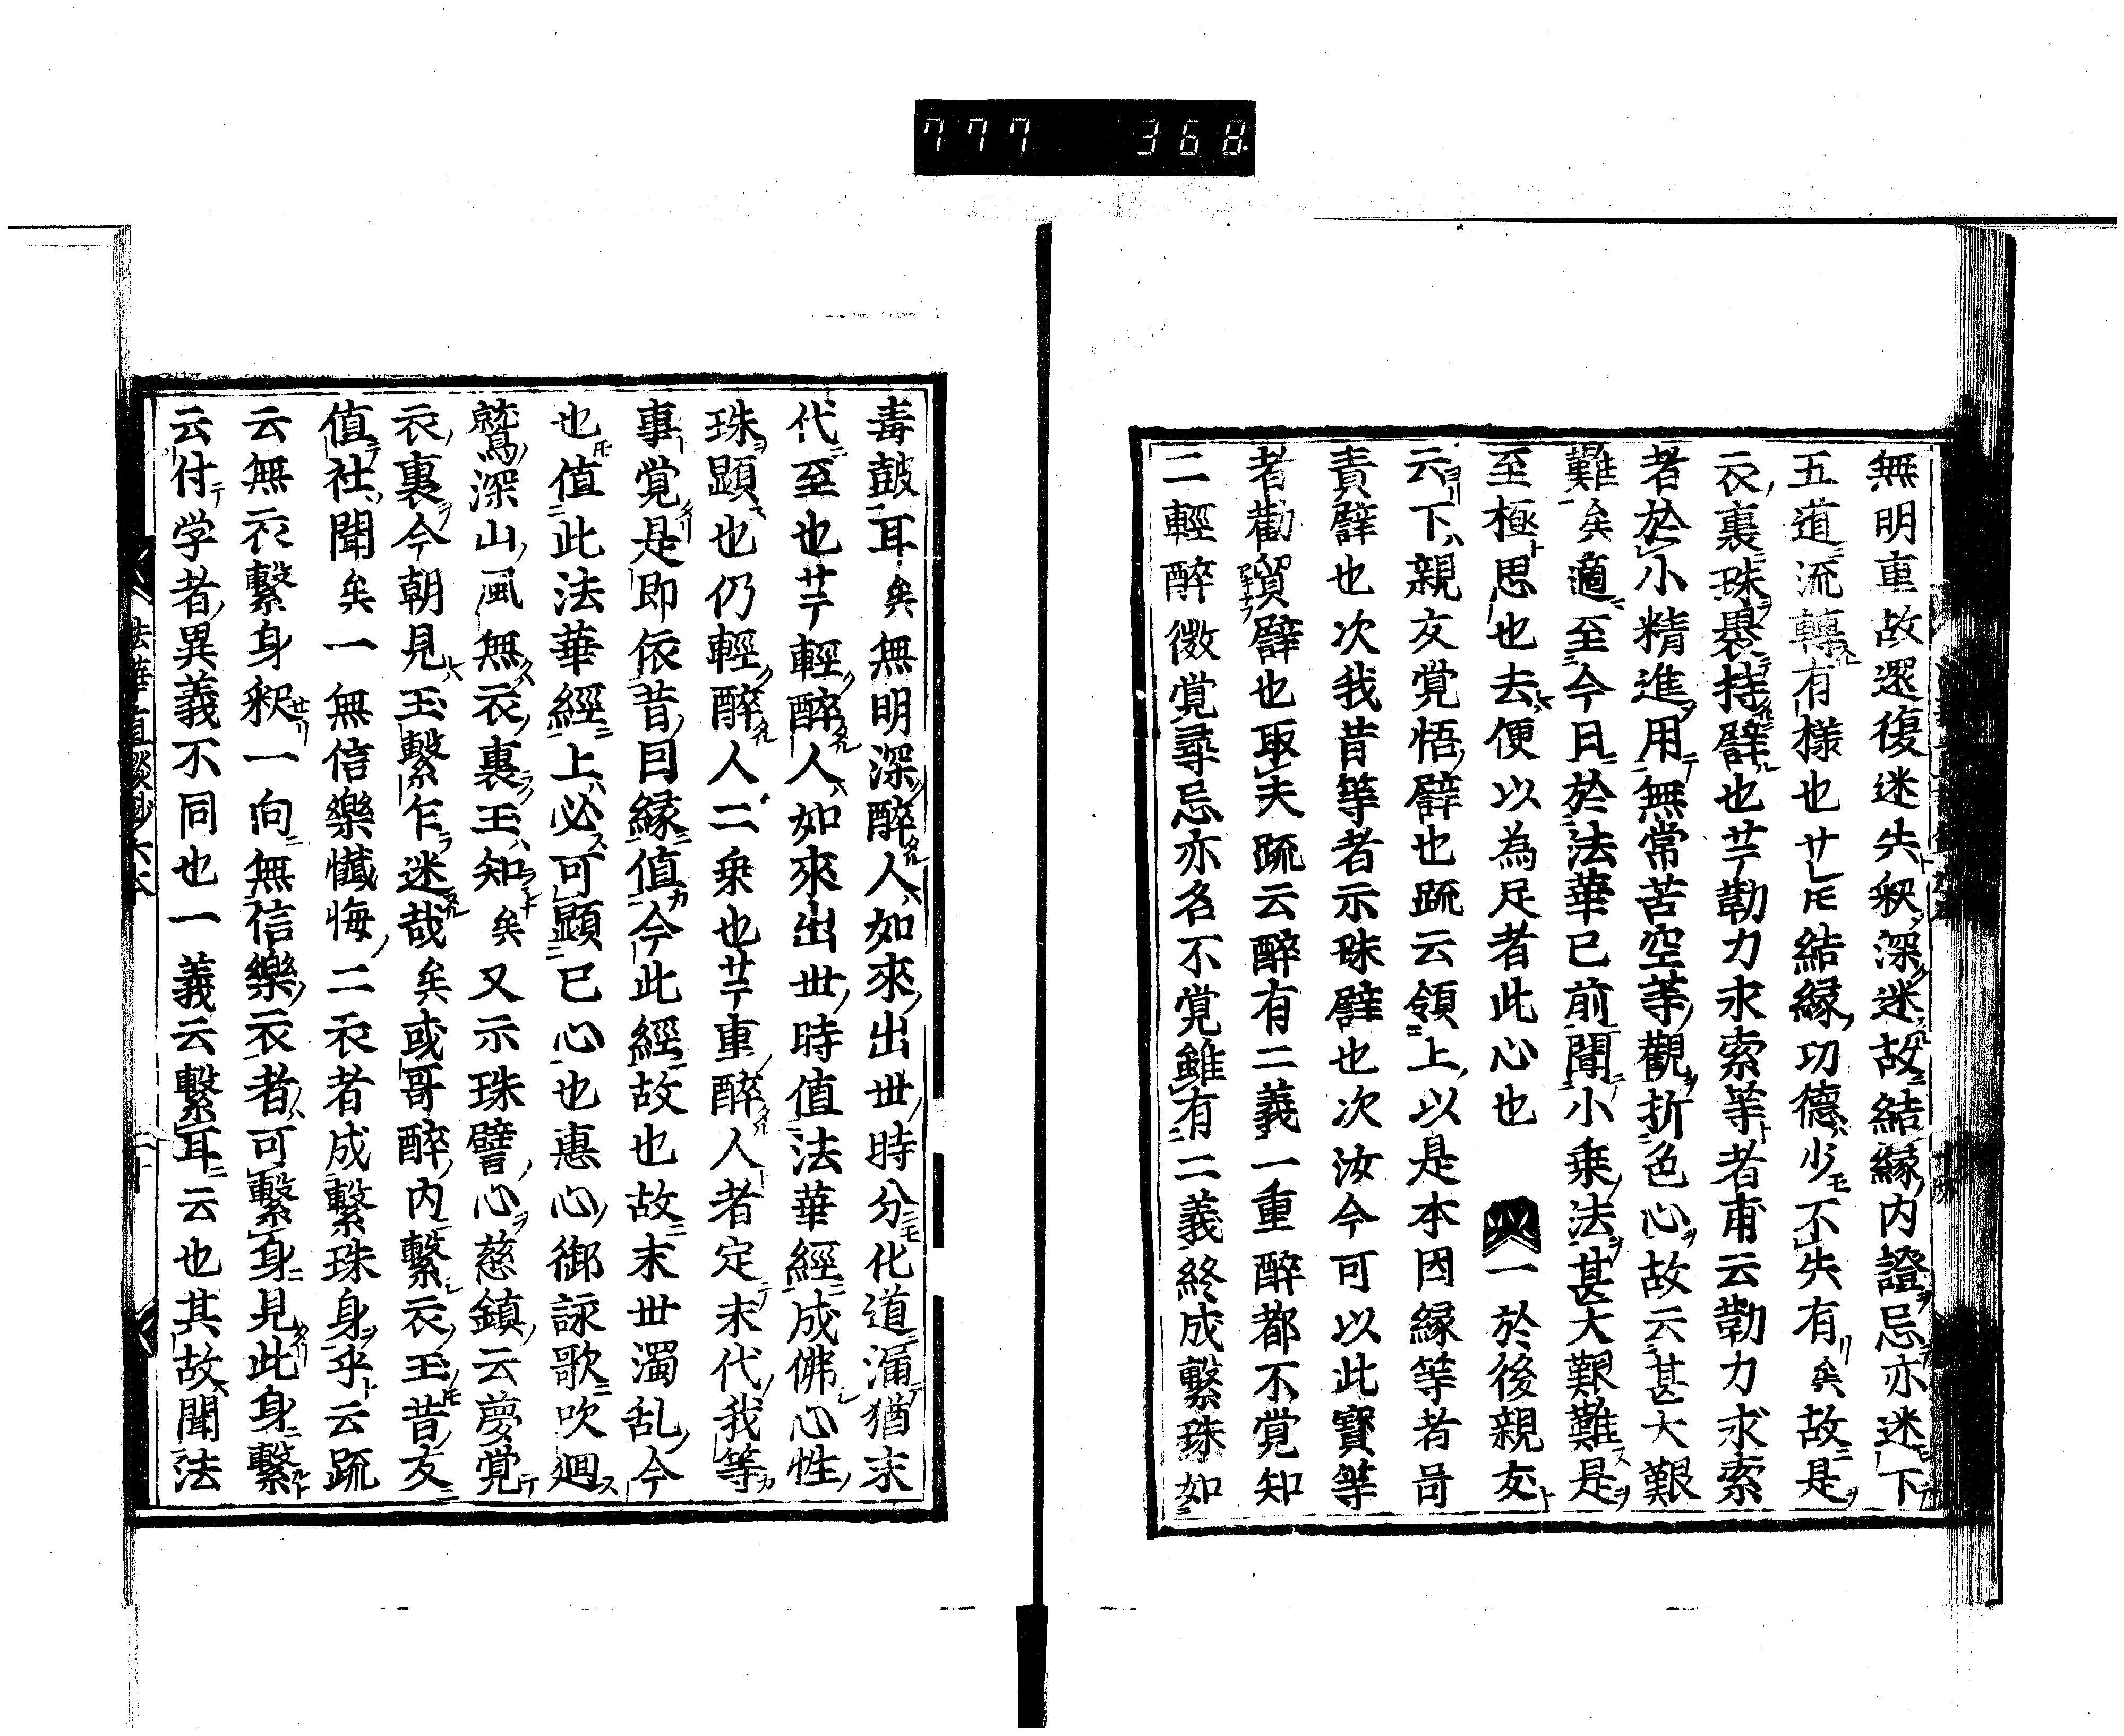 777 368
無明重故還復迷失釈深迷故結縁内證忌亦迷下
五道流轉有様也サレ𪜈結縁功德少不失有矣故是
衣裏珠褁持辟也䒾勤力求索等者甫云勤力求索
者於小精進用無常苦空等觀折色心故云甚大艱
難矣適至今日於法華已前聞小乗法甚大艱難是
至極思也去便以為足者此心也 一於後親友
云下親友覚悟辟也䟽云領上以是本因縁等者咼
責辟也次我昔等者示珠辟也次汝今可以此寳等
者勸貿辟也取夫䟽云醉有二義一重醉都不覚知
二輕醉微覚尋忌亦名不覚雖有二義終成繋珠如
毒皷耳矣無明深醉人如來出世時分化道漏猶末
代至也䒾輕醉人如來出世時值法華經成佛心性
珠顕也仍輕醉人二乗也䒾重醉人者定末代我等
事覚是即依昔囙縁值今此經故也故末世濁乱今
也值此法華經上必可顕已心也惠心御詠歌吹廻
鷲深山風無衣裏玉知矣又示珠譬心慈鎮云夢覚
衣裏今朝見玉繋乍迷哉矣或哥醉内繋衣玉昔友
值社聞矣一無信樂懴悔二衣者成繋珠身乎云䟽
云無衣繋身釈一向無信樂衣者可繋身見此身繋
云付学者異義不同也一義云繋耳云也其故聞法
法華直談鈔六本